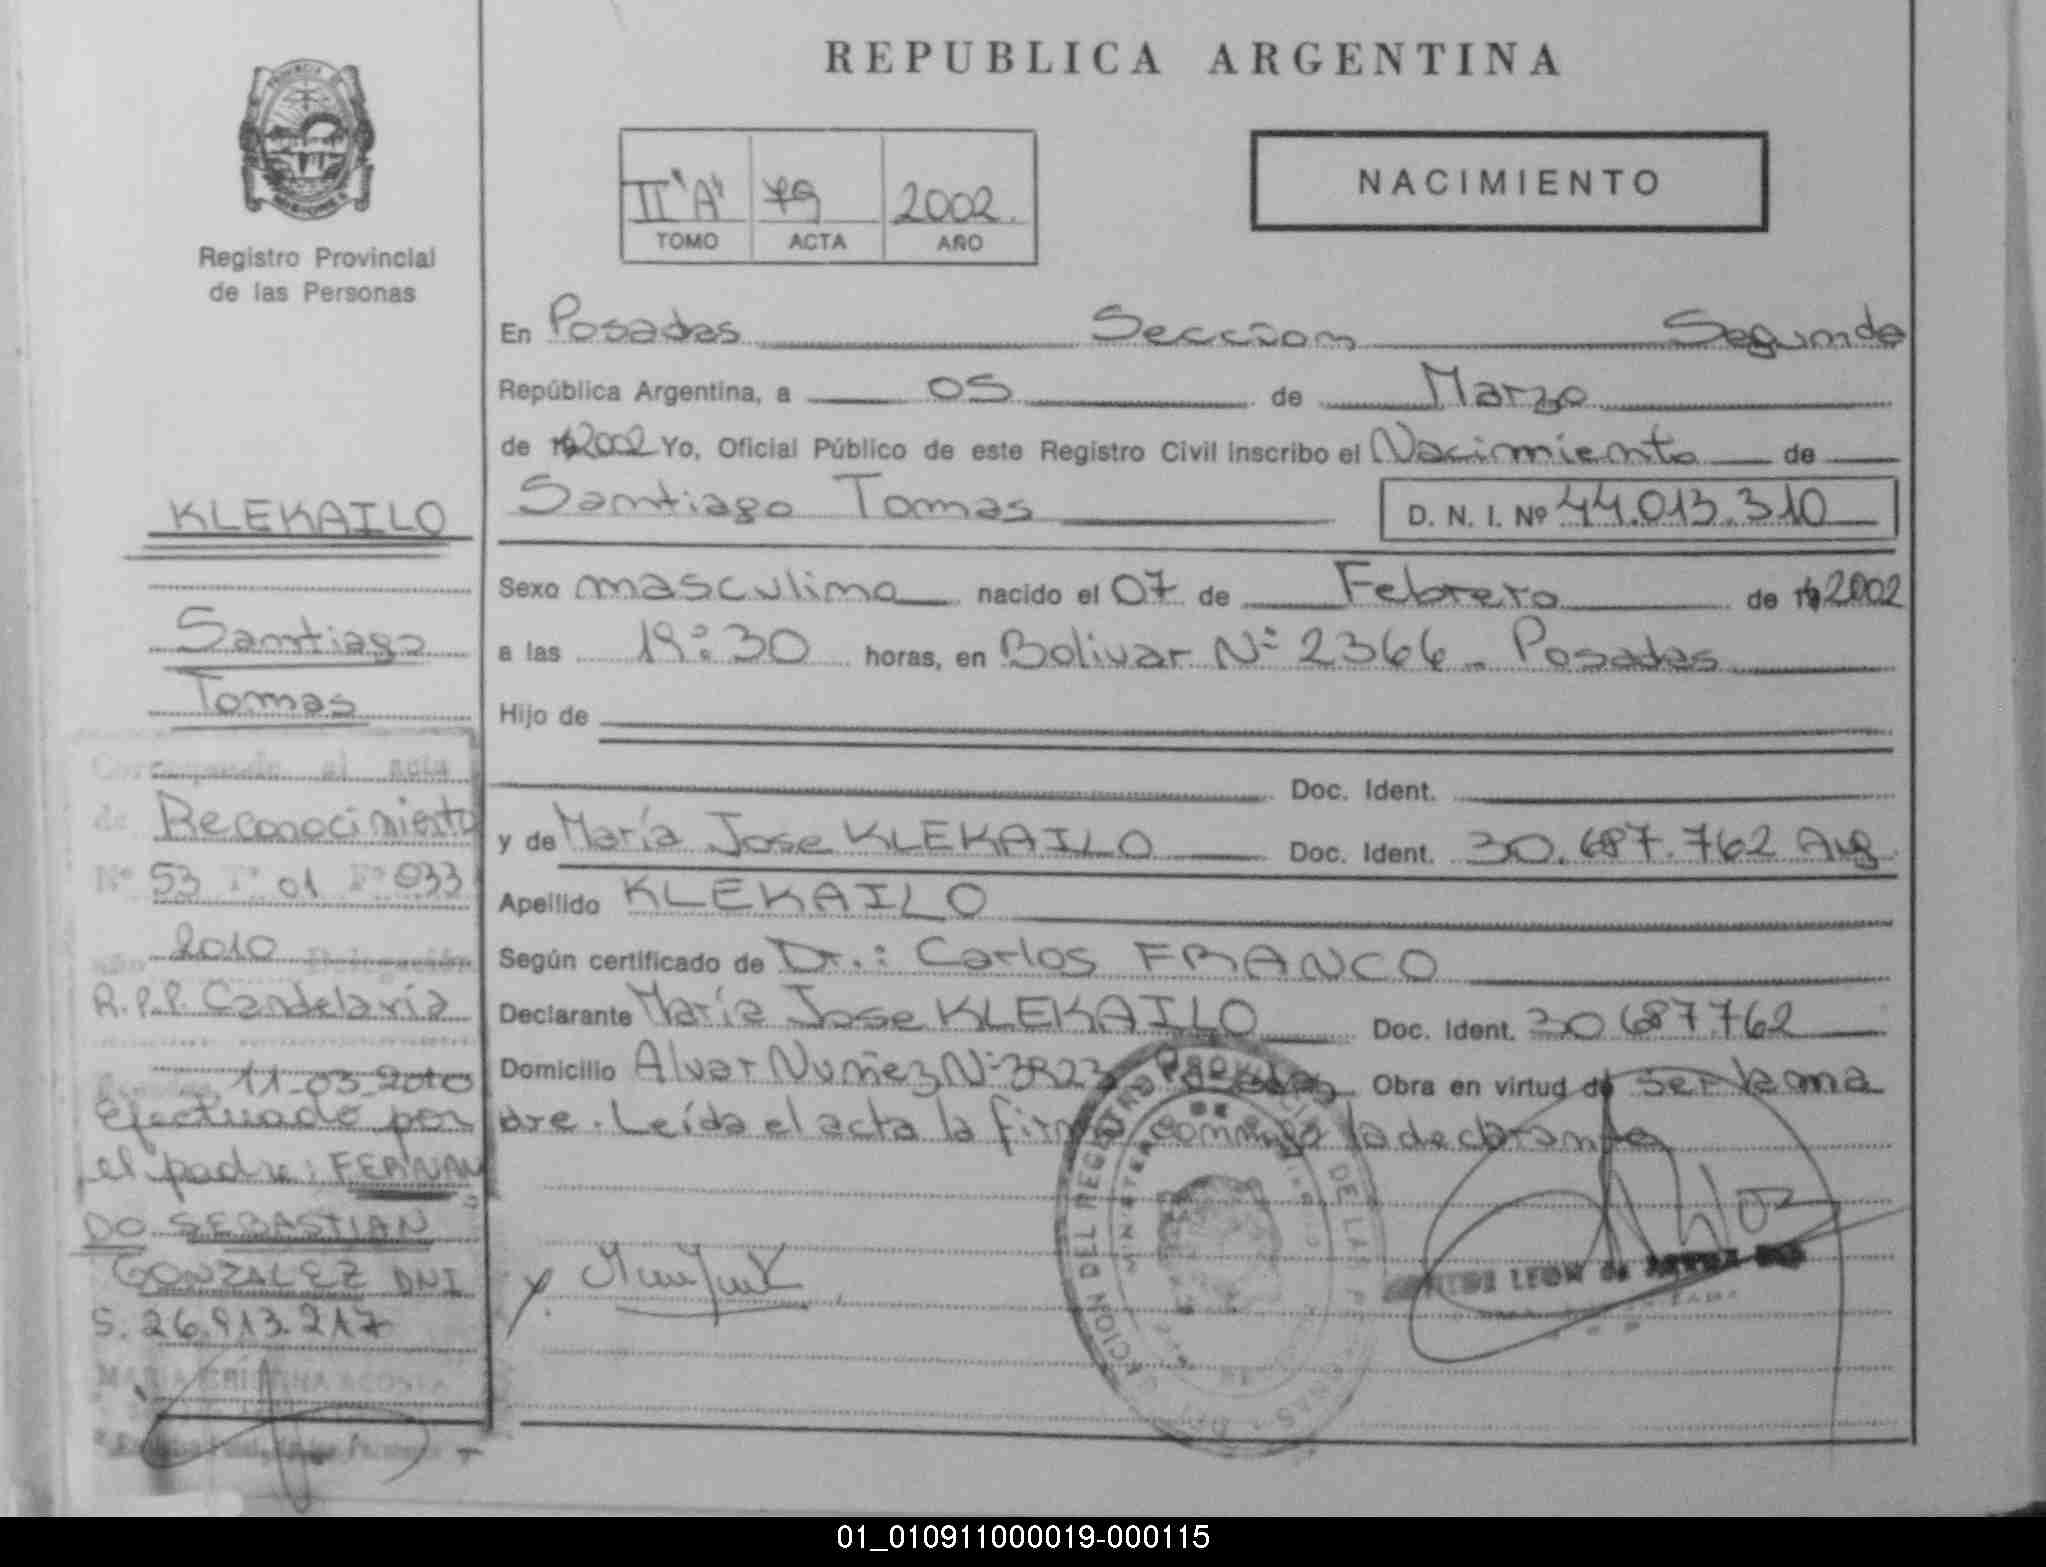 REPUBLICA ARGENTINA
NACIMIENTO
II "A" 79 2002.
TOMO ACTA AÑO
Registro Provincial
de las Personas
En Posadas Seccion Segunda
República Argentina, a 05 de Marzo
de 2002 Yo, Oficial Público de este Registro Civil inscribo el Nacimiento de
Santiago Tomas D. N. I. Nº 44.013.310
Sexo masculino nacido el 07 de Febrero de 2002
a las 19:30 horas, en Bolivar Nº 2366 - Posadas
Hijo de
Doc. Ident.
y de María Jose KLEKAILO Doc. Ident. 30.687.762 Arg
Apellido KLEKAILO
Según certificado de Dr.: Carlos FRANCO
Declarante María Jose KLEKAILO Doc. Ident. 30687762
Domicilio Alvar Nuñez Nº Posadas Obra en virtud de ser la ma
dre. Leída el acta la firma conmigo la declarante
KLEKAILO
Santiago
Tomas
Corresponde al acta
de Reconocimiento
Nº 53 Tº 01 Fº 033
año 2010 Delegación
R.P.P. Candelaria
11-03-2010
efectuado por
el padre: FERNAN
DO SEBASTIAN
GONZALEZ DNI
S. 26.913.217
MARIA CRISTINA ACOSTA
01_010911000019-000115